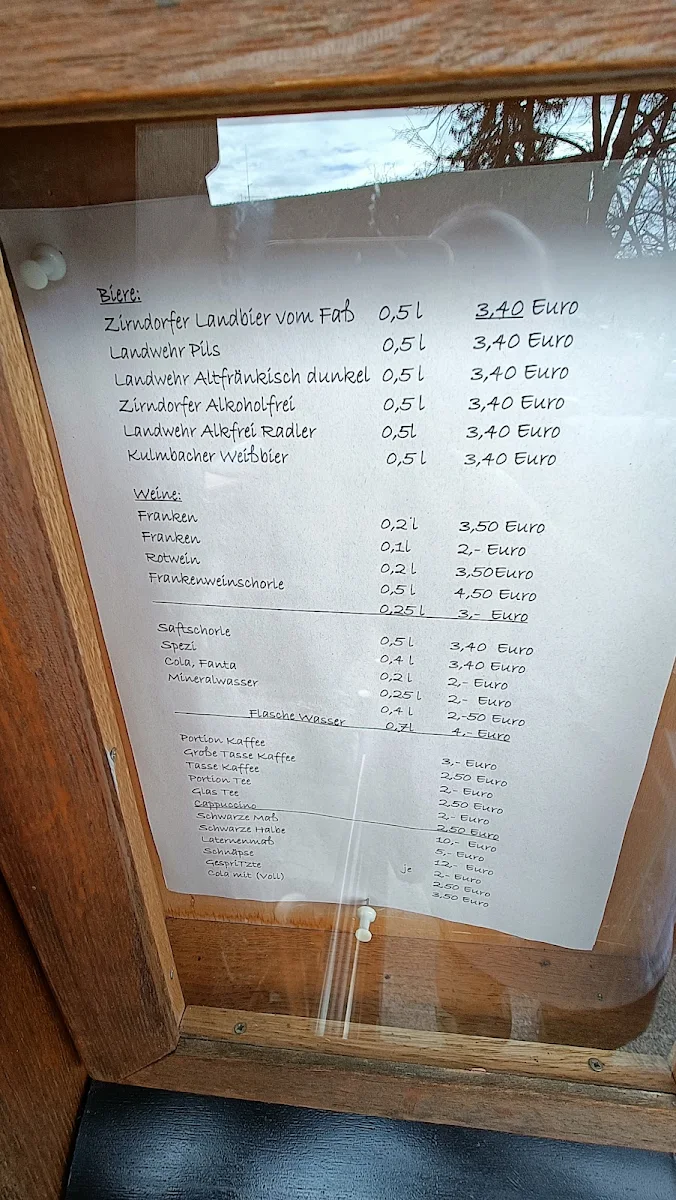 Biere:
Zirndorfer Landbier vom Faß 0,5 l 3,40 Euro
Landwehr Pils 0,5 l 3,40 Euro
Landwehr Altfränkisch dunkel 0,5 l 3,40 Euro
Zirndorfer Alkoholfrei 0,5 l 3,40 Euro
Landwehr Alkfrei Radler 0,5l 3,40 Euro
Kulmbacher Weißbier 0,5 l 3,40 Euro
Weine:
Franken 0,2 l 3,50 Euro
Franken 0,1l 2,- Euro
Rotwein 0,2 l 3,50Euro
Frankenweinschorle 0,5 l 4,50 Euro
0,25 l 3,- Euro
Saftschorle 0,5 l 3,40 Euro
Spezi 0,4 l 3,40 Euro
Cola, Fanta 0,2 l 2,- Euro
Mineralwasser 0,25 l 2,- Euro
0,4 l 2,-50 Euro
Flasche Wasser 0,7l 4,- Euro
Portion Kaffee 3,- Euro
Große Tasse Kaffee 2,50 Euro
Tasse Kaffee 2,- Euro
Portion Tee 2,50 Euro
Glas Tee 2,- Euro
Cappuccino 2,50 Euro
Schwarze Maß 10,- Euro
Schwarze Halbe 5,- Euro
Laternenmaß 12,- Euro
Schnäpse je 2,- Euro
GespriTzte 2,50 Euro
Cola mit (Voll) 3,50 Euro